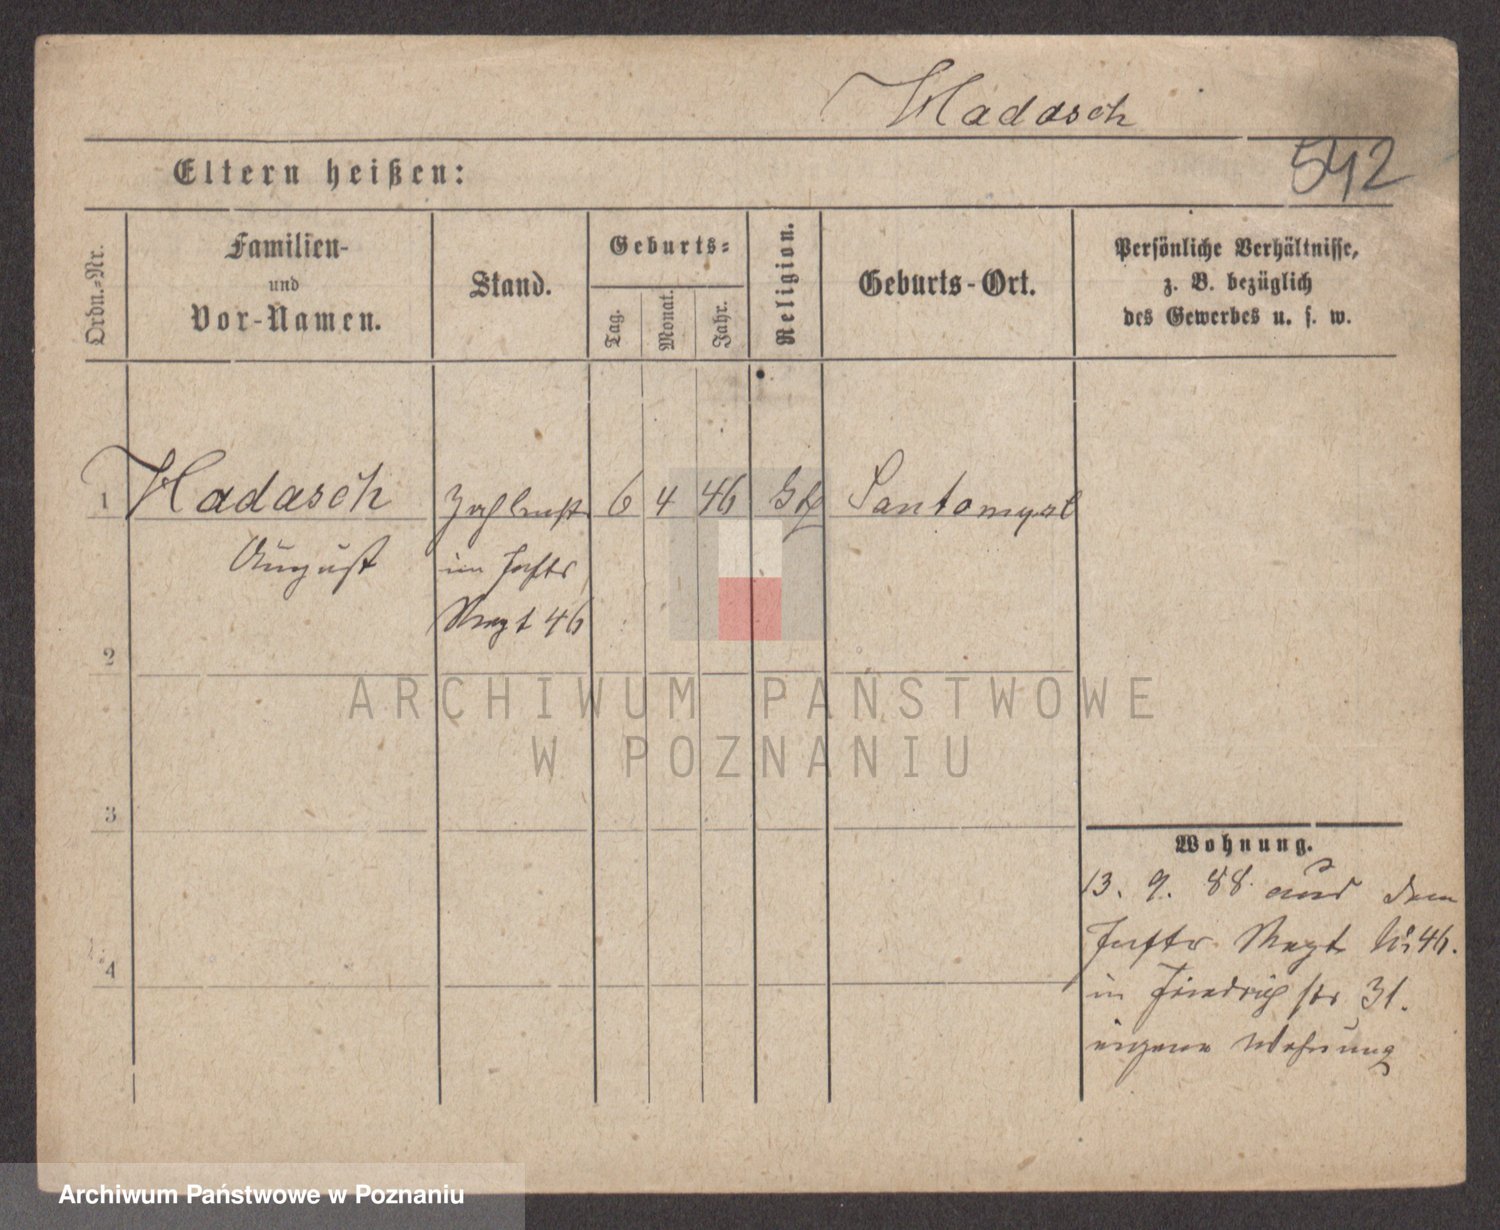 Hadasch
542
Eltern heißen:
Ordn.-Nr.
Familien-
und
Vor-Namen.
Stand.
Geburts-
Tag.
Monat.
Jahr.
Religion.
Geburts-Ort.
Persönliche Verhältnisse,
z. B. bezüglich
des Gewerbes u. s. w.
1 Hadasch 6 4 46 Santomysl
August im Inftr
Regt 46
2
3
4
Wohnung.
13. 9. 88. aus dem
Inftr Regt. No 46.
in Friedrichstr 31.
eigene Wohnung
ARCHIWUM PAŃSTWOWE
W POZNANIU
Archiwum Państwowe w Poznaniu